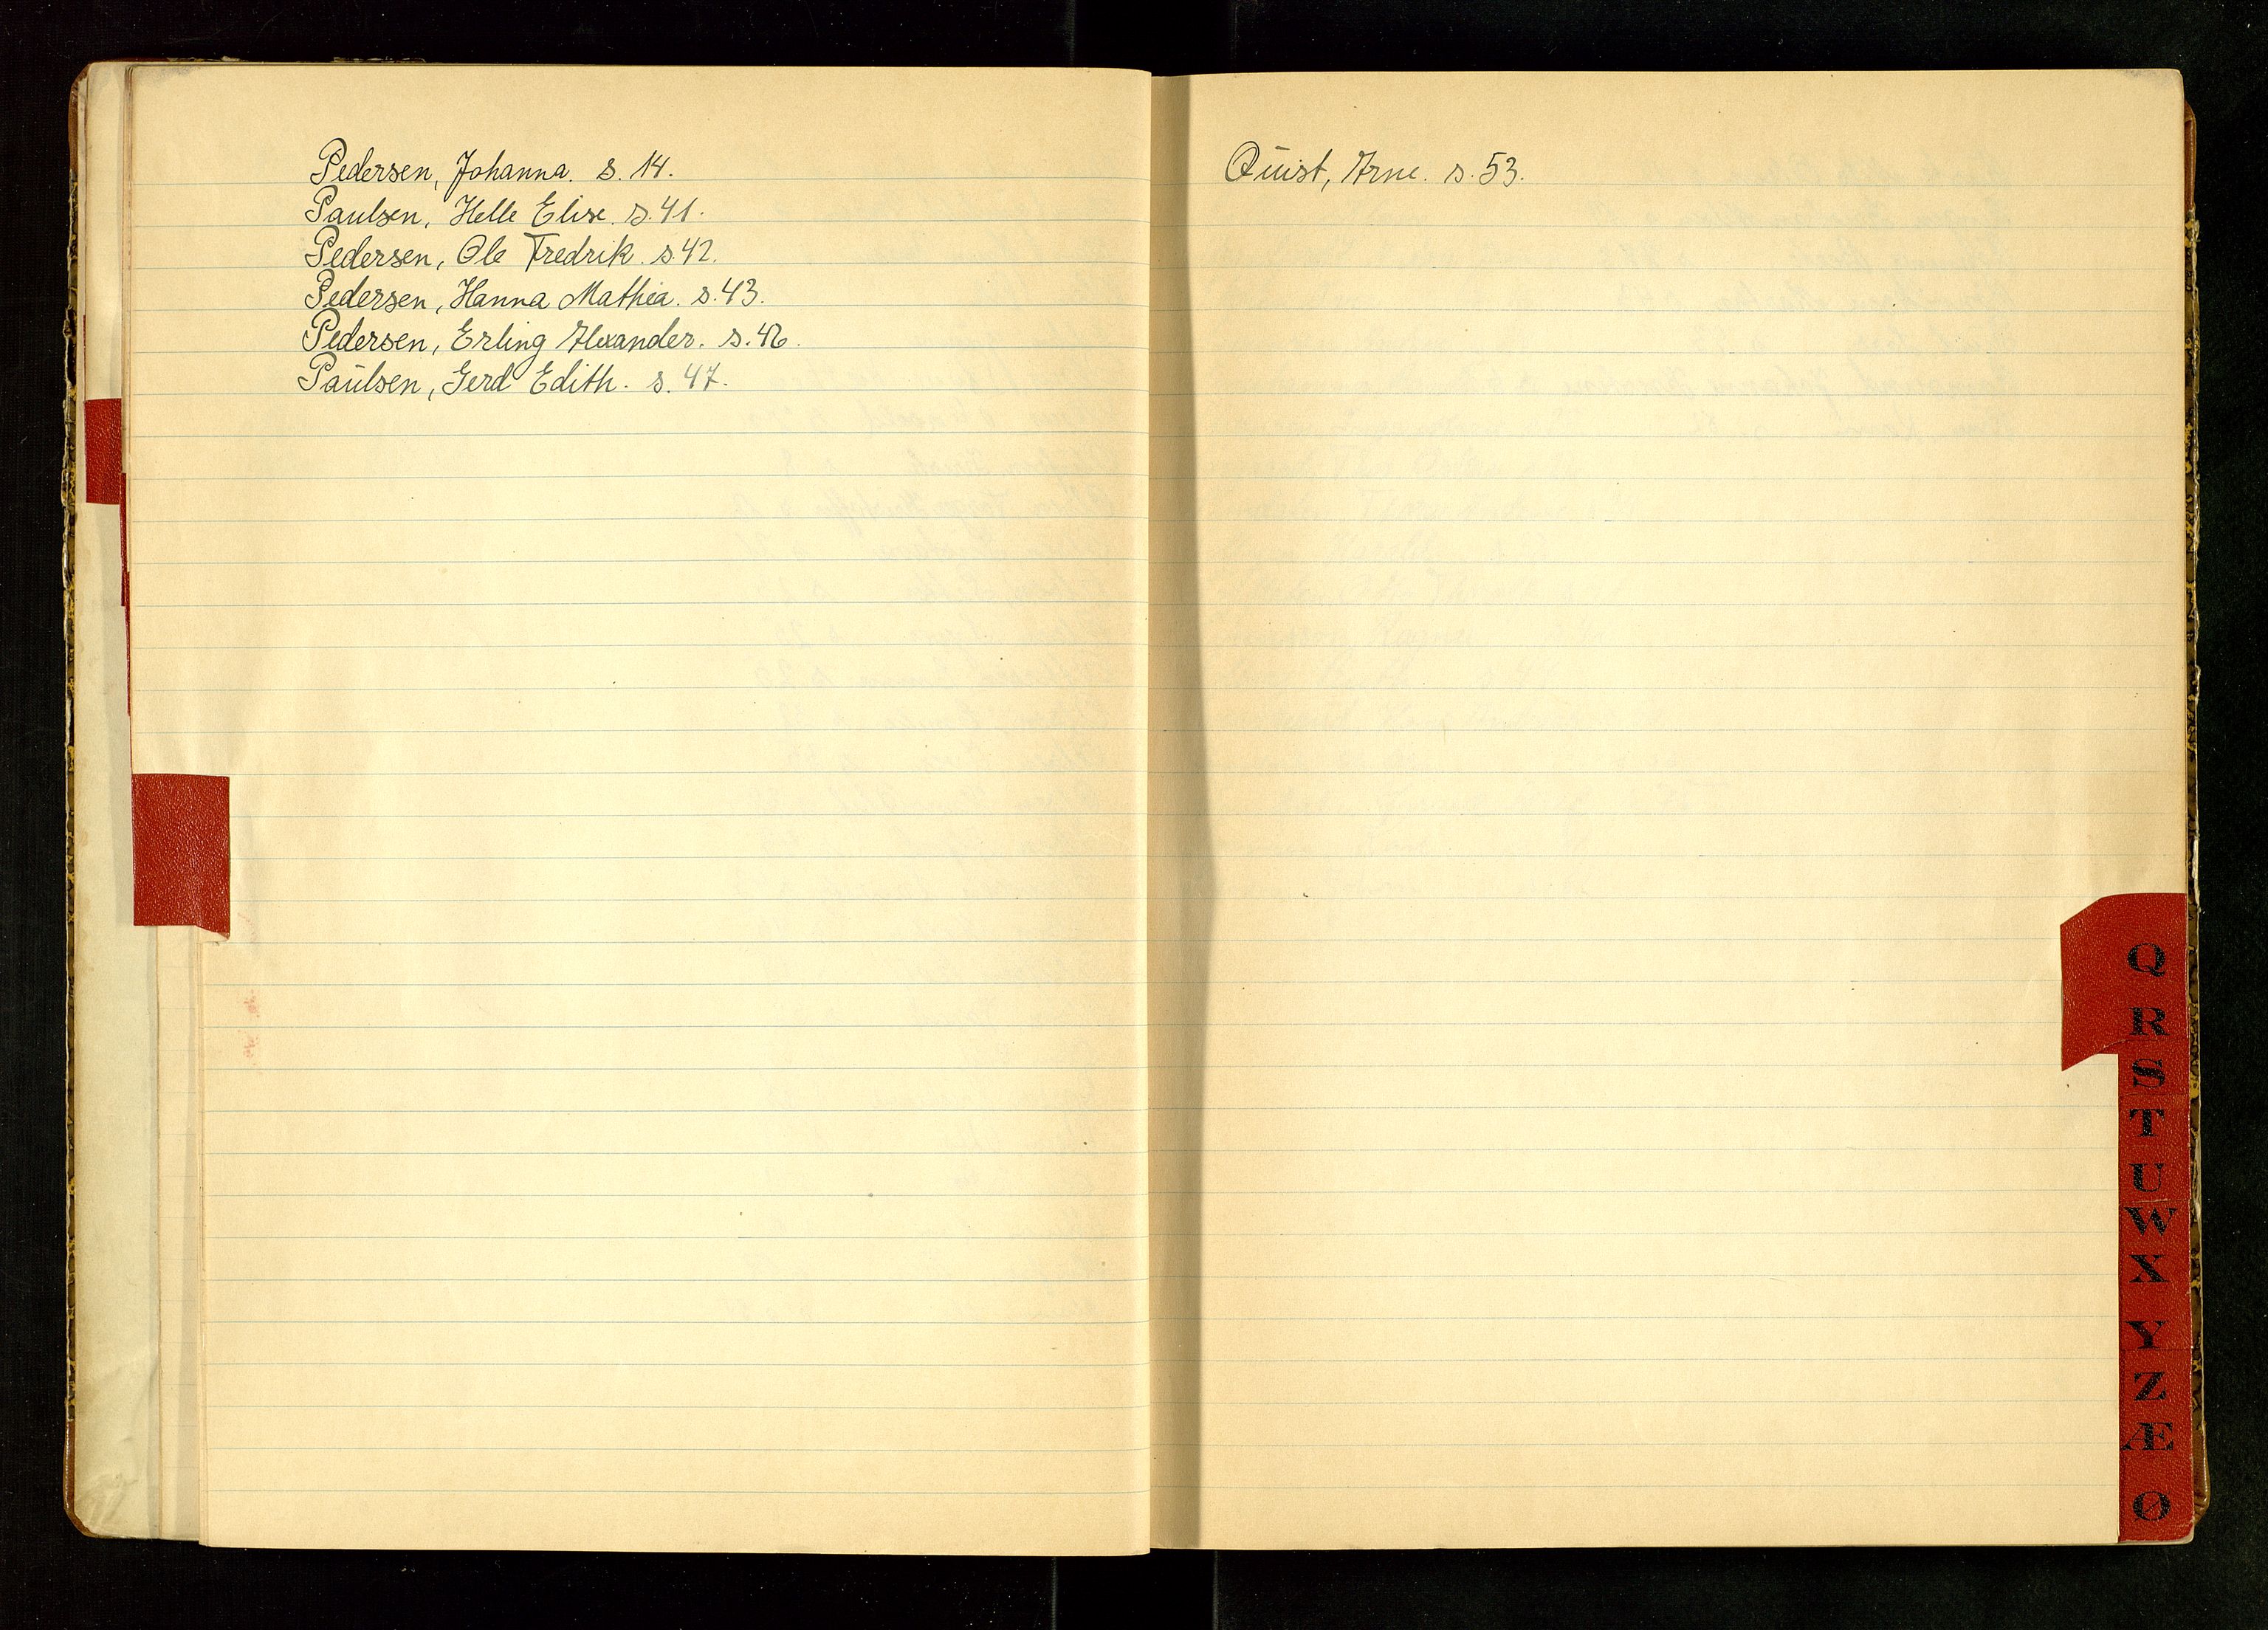 Pedersen, Johanna. s. 14.
Paulsen, Helle Elise. s. 41.
Pedersen, Ole Fredrik. s. 42.
Pedersen, Hanna Mathea. s. 43.
Pedersen, Erling Alexander. s. 46.
Paulsen, Gerd Edith. s. 47.
Quist, Arne. s. 53.
Q
R
S
T
U
W
X
Y
Z
Æ
Ø